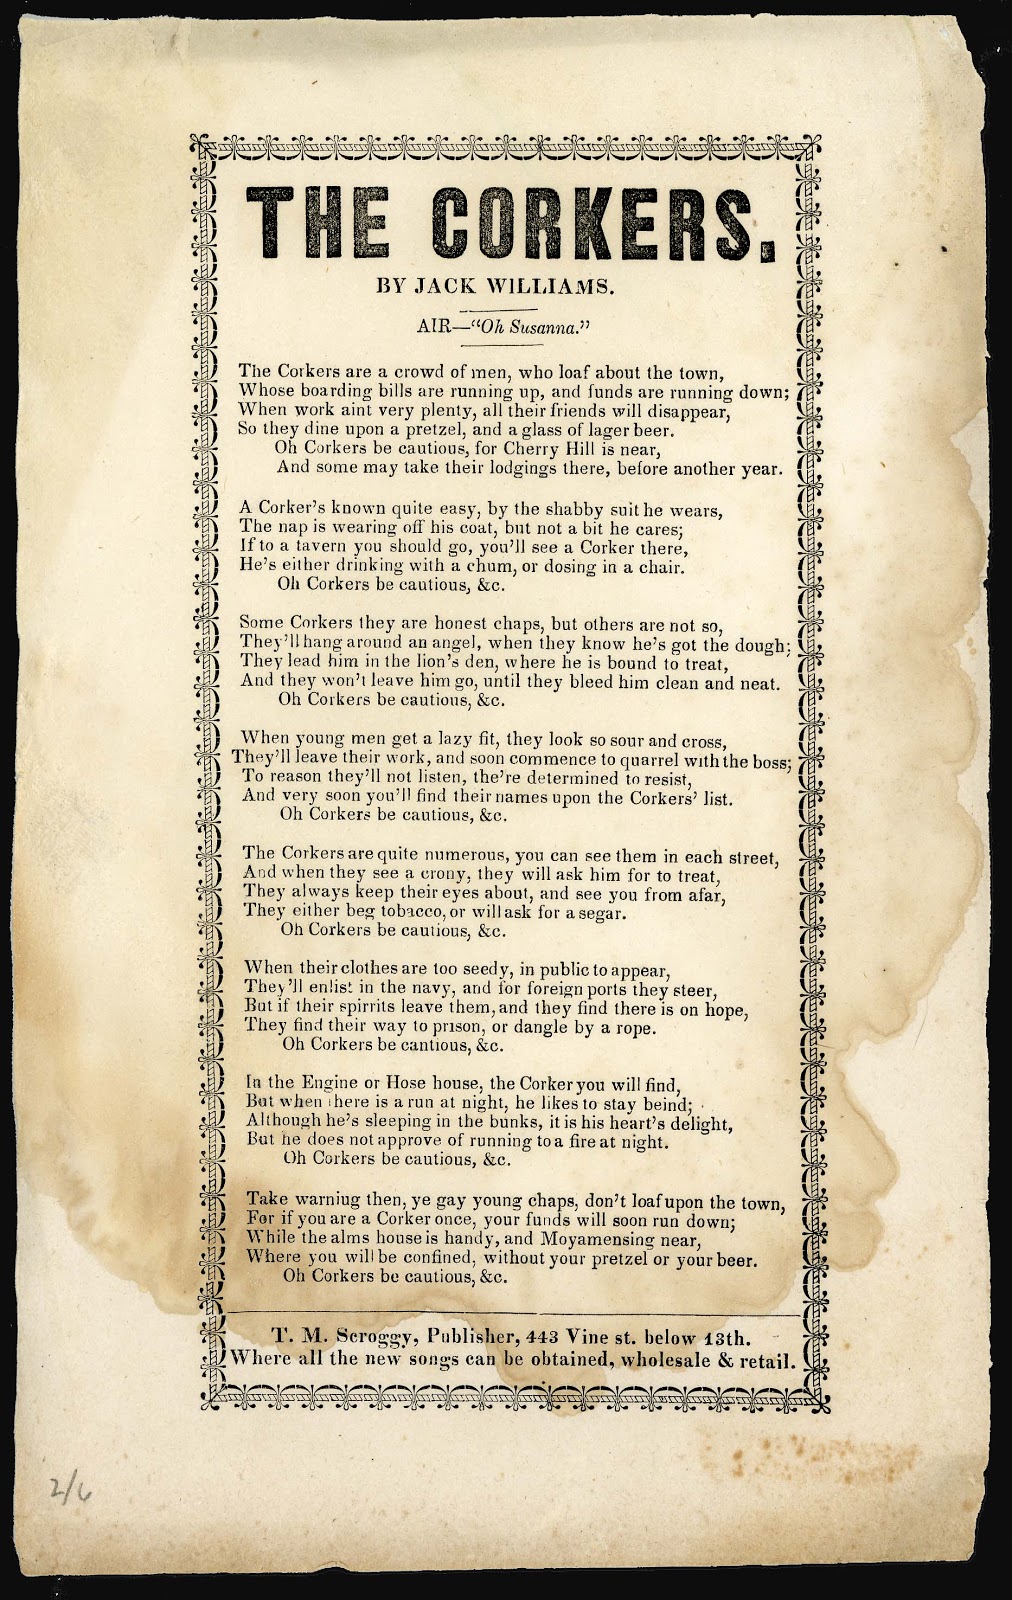 THE CORKERS.
BY JACK WILLIAMS.
AIR—“Oh Susanna.”
The Corkers are a crowd of men, who loaf about the town,
Whose boarding bills are running up, and funds are running down;
When work aint very plenty, all their friends will disappear,
So they dine upon a pretzel, and a glass of lager beer.
Oh Corkers be cautious, for Cherry Hill is near,
And some may take their lodgings there, before another year.
A Corker’s known quite easy, by the shabby suit he wears,
The nap is wearing off his coat, but not a bit he cares;
If to a tavern you should go, you’ll see a Corker there,
He’s either drinking with a chum, or dosing in a chair.
Oh Corkers be cautious, &c.
Some Corkers they are honest chaps, but others are not so,
They’ll hang around an angel, when they know he’s got the dough;
They lead him in the lion’s den, where he is bound to treat,
And they won’t leave him go, until they bleed him clean and neat.
Oh Corkers be cautious, &c.
When young men get a lazy fit, they look so sour and cross,
They’ll leave their work, and soon commence to quarrel with the boss;
To reason they’ll not listen, the’re determined to resist,
And very soon you’ll find their names upon the Corkers’ list.
Oh Corkers be cautious, &c.
The Corkers are quite numerous, you can see them in each street,
And when they see a crony, they will ask him for to treat,
They always keep their eyes about, and see you from afar,
They either beg tobacco, or will ask for a segar.
Oh Corkers be cautious, &c.
When their clothes are too seedy, in public to appear,
They’ll enlist in the navy, and for foreign ports they steer,
But if their spirrits leave them, and they find there is on hope,
They find their way to prison, or dangle by a rope.
Oh Corkers be cantious, &c.
In the Engine or Hose house, the Corker you will find,
But when there is a run at night, he likes to stay beind;
Although he’s sleeping in the bunks, it is his heart’s delight,
But he does not approve of running to a fire at night.
Oh Corkers be cautious, &c.
Take warniug then, ye gay young chaps, don’t loaf upon the town,
For if you are a Corker once, your funds will soon run down;
While the alms house is handy, and Moyamensing near,
Where you will be confined, without your pretzel or your beer.
Oh Corkers be cautious, &c.
T. M. Scroggy, Publisher, 443 Vine st. below 13th.
Where all the new songs can be obtained, wholesale & retail.
2/6